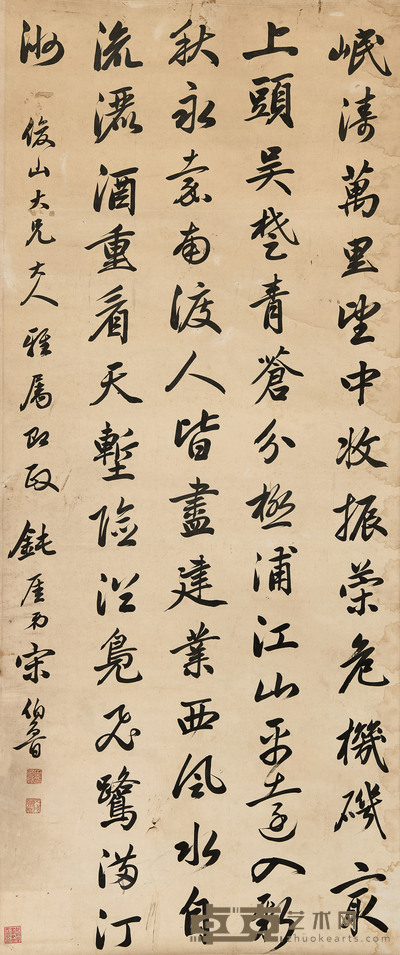 岷濤萬里望中收振策危機磯最
上頭吳楚青蒼分極浦江山平遠入新
秋永嘉南渡人皆盡建業西風水自
流灑酒重看天塹險浴鳧飛鷺滿汀
洲
俊山大兄大人雅屬即政 鈍厓弟宋伯魯
艺术网
zhuokearts.com